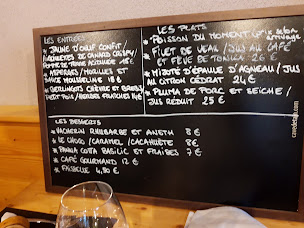 LES ENTRÉES
* JAUNE D'ŒUF CONFIT /
DE CANARD CRISPY /
DE TERRE ACIDULÉE 18€
* ASPERGES / MORILLES ET
MOUSSELINE 19€
* BERLINGOTS CHÈVRE ET
PETIT POIS / HERBES FRAICHES
LES PLATS
* POISSON DU MOMENT (Prix selon
arrivage)
* FILET DE VEAU / JUS AU CAFÉ
ET FÈVE DE TONKA 26 €
* MIJOTÉ D'ÉPAULE D'AGNEAU / JUS
AU CITRON CÉDRAT 24€
* PLUMA DE PORC ET SEICHE /
JUS RÉDUIT 25 €
LES DESSERTS
* VACHERIN RHUBARBE ET ANETH 8 €
* LE CHOCO / CARAMEL / CACAHUÈTE 8€
* PANNA COTTA BASILIC ET FRAISES 7€
* CAFÉ GOURMAND 12 €
* FAISSELLE 4,80 €